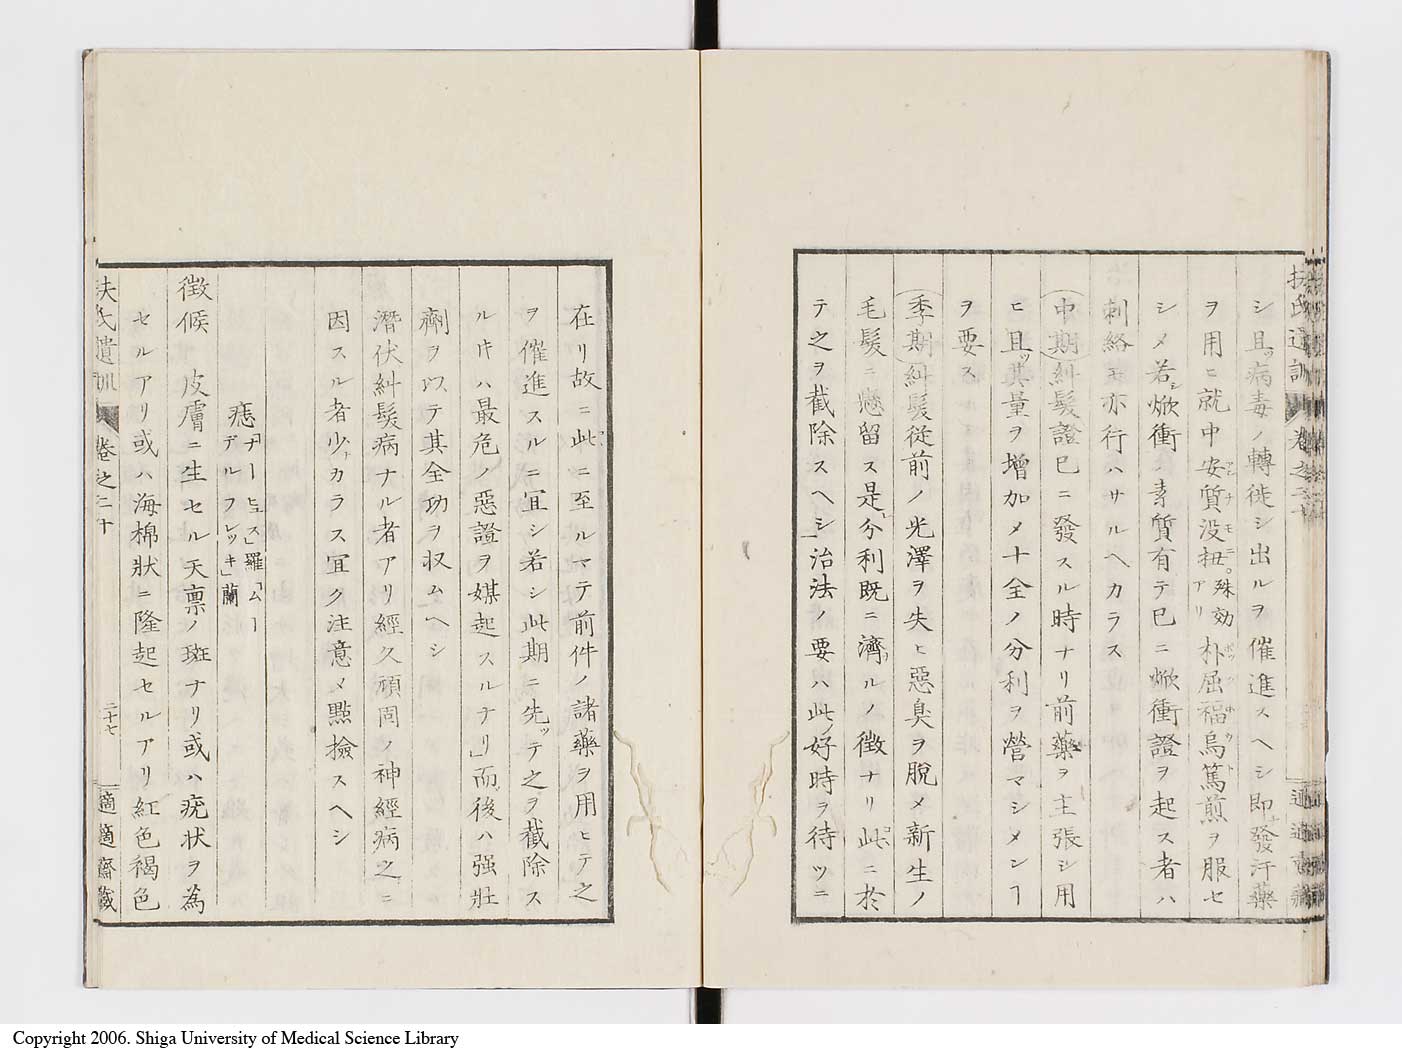 扶氏遺訓 卷之二十
適適齋藏
シ且ッ病毒ノ轉徙シ出ルヲ催進スヘシ即チ發汗藥
ヲ用ヒ就中安質没扭アンチモニ。殊効アリ朴屈福烏篤ポックホウト煎ヲ服セ
シメ若シ焮衝素質有テ已ニ焮衝證ヲ起ス者ハ
刺絡モ亦行ハサルヘカラス
中期糾髮證已ニ發スル時ナリ前藥ヲ主張シ用
ヒ且ッ其量ヲ増加メ十全ノ分利ヲ營マシメンヿ
ヲ要ス
季期糾髮從前ノ光澤ヲ失ヒ惡臭ヲ脫メ新生ノ
毛髮ニ懸留ス是レ分利既ニ濟ルノ徴ナリ此ニ於
テ之ヲ截除スヘシ」治法ノ要ハ此好時ヲ待ツニ
在リ故ニ此ニ至ルマテ前件ノ諸藥ヲ用ヒテ之
ヲ催進スルニ宜シ若シ此期ニ先ッテ之ヲ截除ス
ルキハ最危ノ惡證ヲ媒起スルナリ」而後ハ强壯
劑ヲ以テ其全功ヲ収ムヘシ
潛伏糾髮病ナル者アリ經久頑固ノ神經病之ニ
因スル者少カラス宜ク注意メ點撿スヘシ
痣「ナーヒュス」羅「ムーデルフレッキ」蘭
徴候 皮膚ニ生セル天禀ノ斑ナリ或ハ疣状ヲ為
セルアリ或ハ海棉狀ニ隆起セルアリ紅色褐色
扶氏遺訓 卷之二十 二十七 適適齋藏
Copyright 2006. Shiga University of Medical Science Library